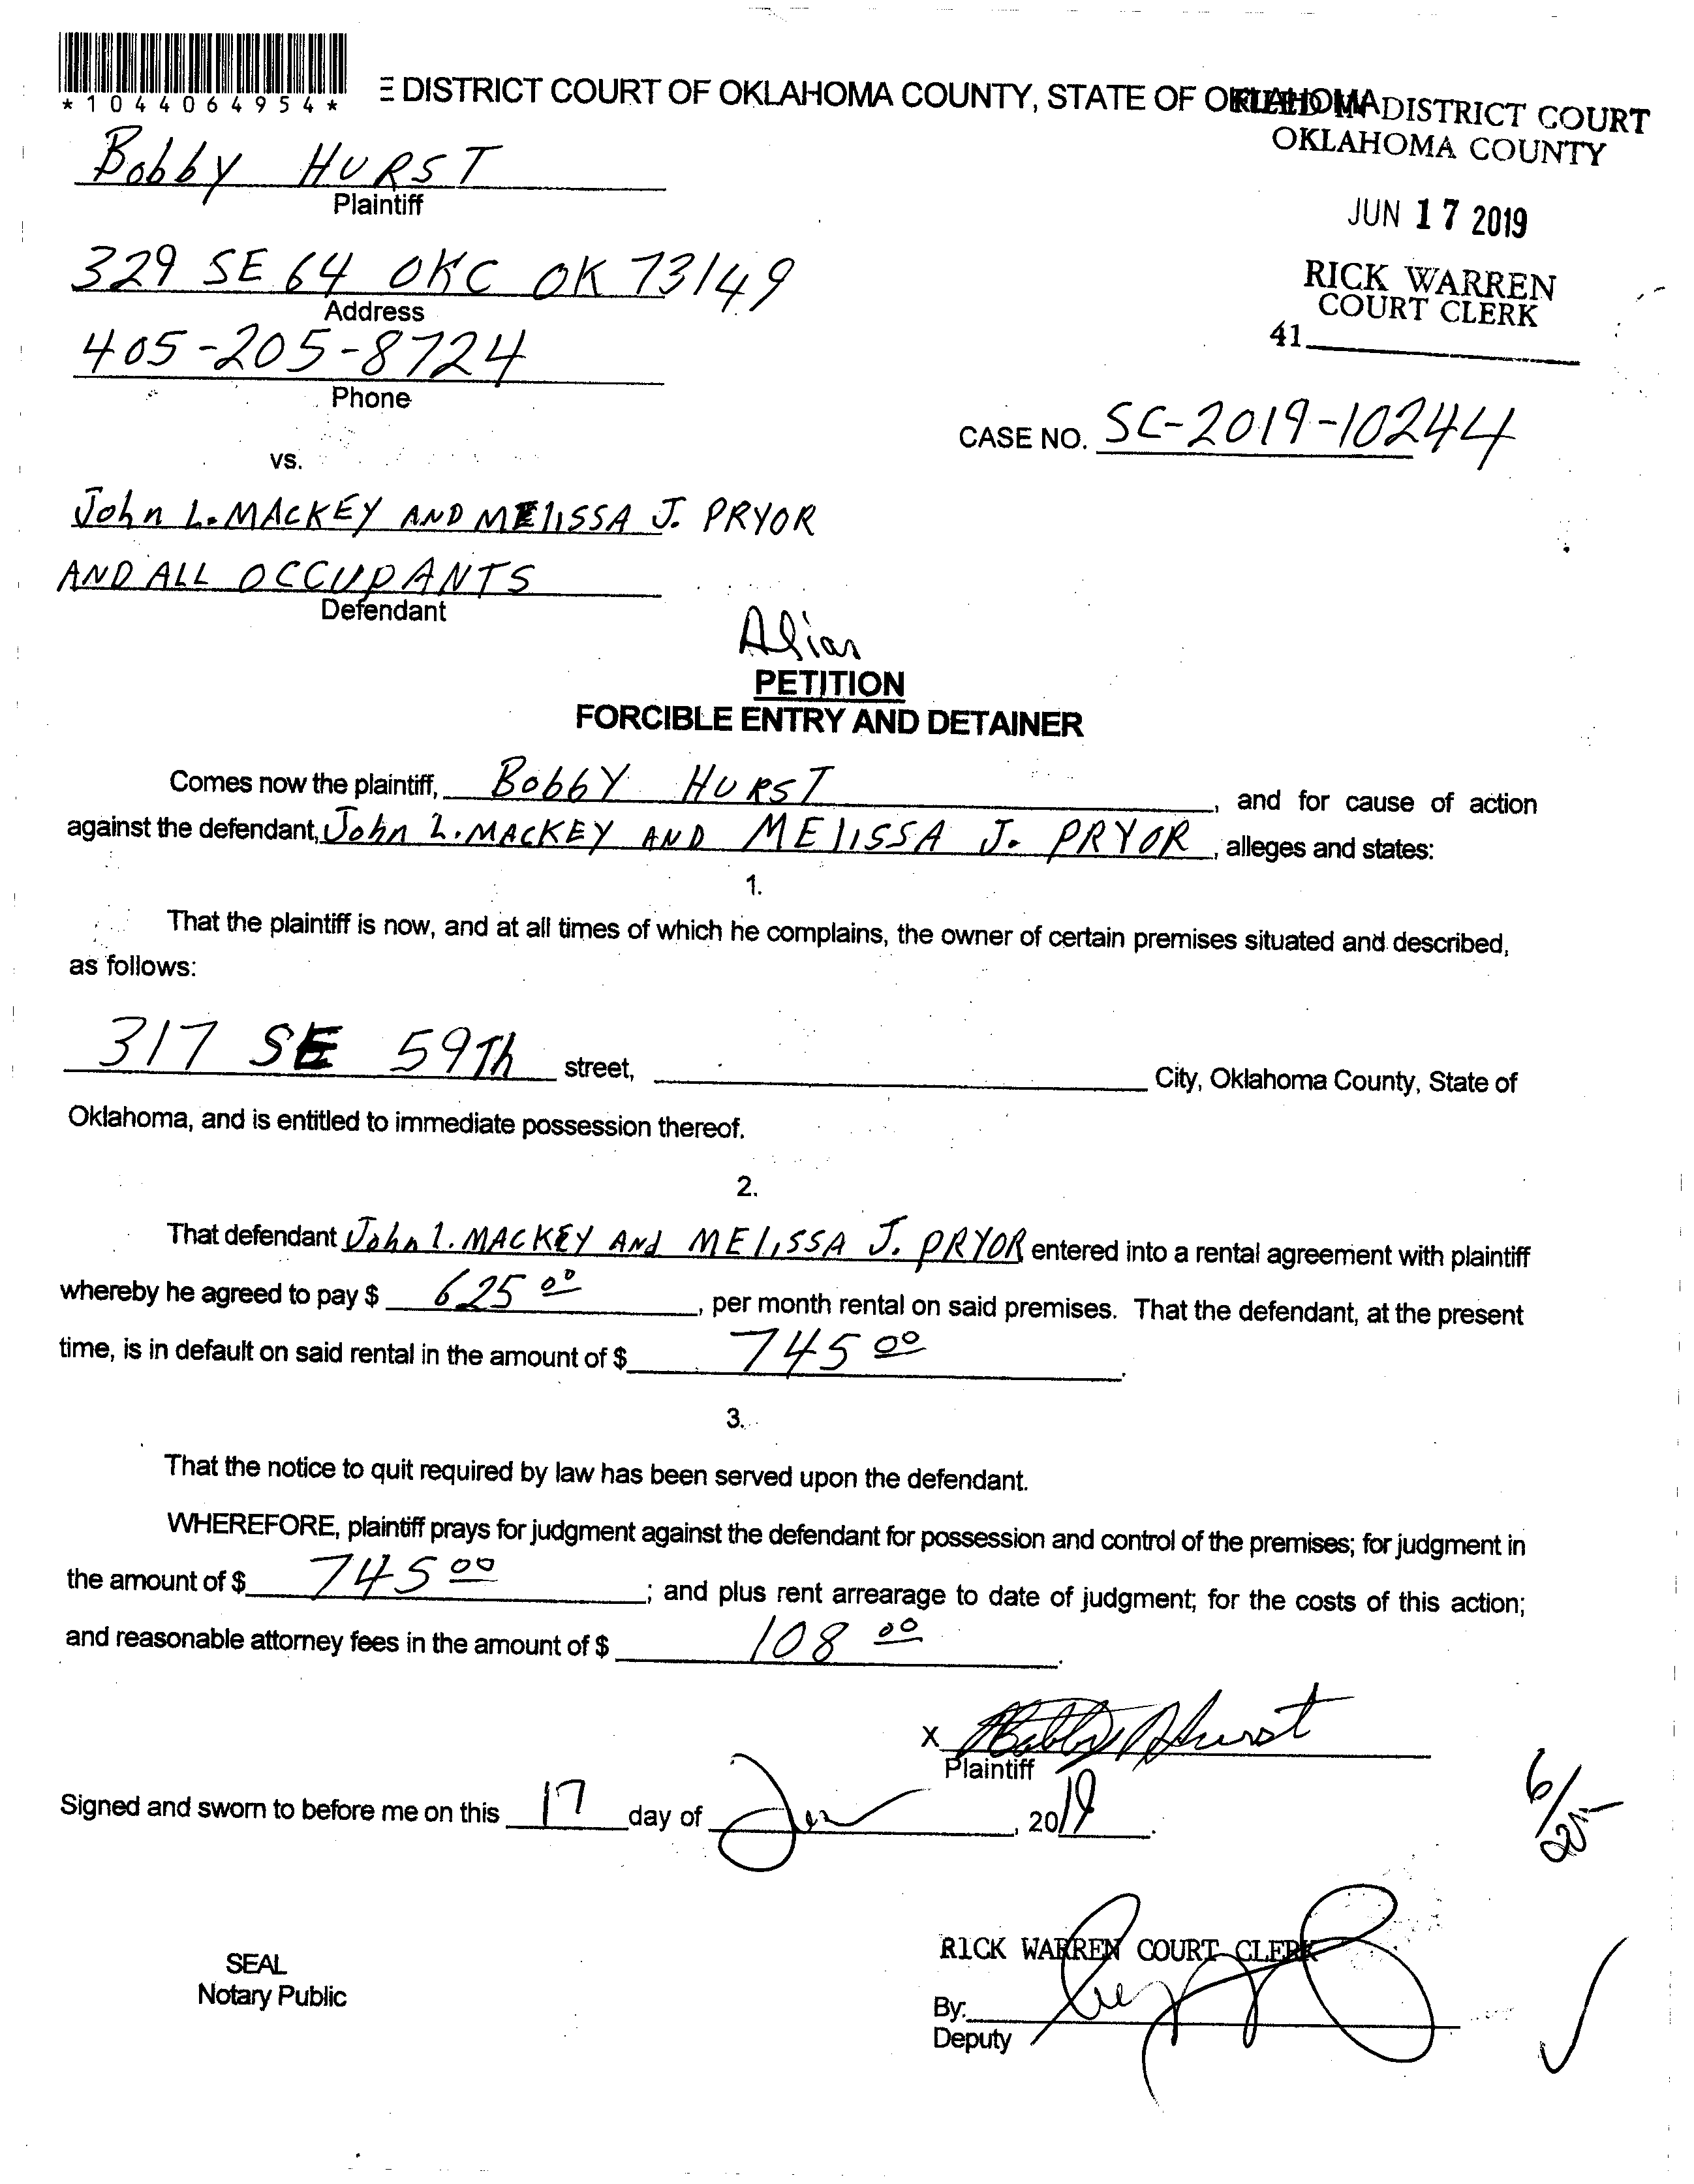 *1044064954*
E DISTRICT COURT OF OKLAHOMA COUNTY, STATE OF OKLAHOMA
FILED IN DISTRICT COURT
OKLAHOMA COUNTY
Bobby HURST
Plaintiff
JUN 17 2019
329 SE 64 OKC OK 73149
Address
RICK WARREN
COURT CLERK
41
405-205-8724
Phone
CASE NO. SC-2019-10244
vs.
John L. MACKEY AND MELISSA J. PRYOR
AND ALL OCCUPANTS
Defendant
Alias
PETITION
FORCIBLE ENTRY AND DETAINER
Comes now the plaintiff, BobbY HURST, and for cause of action
against the defendant, John L. MACKEY AND MELISSA J. PRYOR, alleges and states:
1.
That the plaintiff is now, and at all times of which he complains, the owner of certain premises situated and described,
as follows:
317 SE 59Th street, City, Oklahoma County, State of
Oklahoma, and is entitled to immediate possession thereof.
2.
That defendant John L. MACKEY And MELISSA J. PRYOR entered into a rental agreement with plaintiff
whereby he agreed to pay $ 625 00, per month rental on said premises. That the defendant, at the present
time, is in default on said rental in the amount of $ 745 00.
3.
That the notice to quit required by law has been served upon the defendant.
WHEREFORE, plaintiff prays for judgment against the defendant for possession and control of the premises; for judgment in
the amount of $ 745 00; and plus rent arrearage to date of judgment; for the costs of this action;
and reasonable attorney fees in the amount of $ 108 00.
X Bobby Hurst
Plaintiff
Signed and sworn to before me on this 17 day of Jun, 2019.
RICK WARREN COURT CLERK
SEAL
Notary Public
By:
Deputy